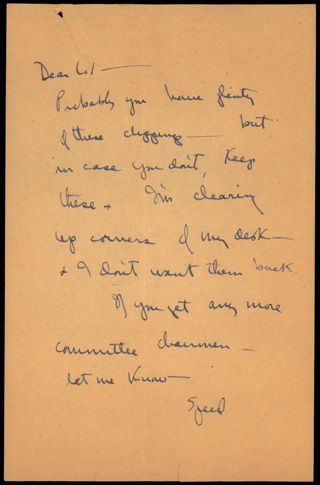 Dear
Probably you have plenty
of these clippings — but
in case you don't, Keep
these. I'm clearing
up corners of my desk —
& I don't want them back.
If you get any more
committee chairmen —
let me Know —
Speed